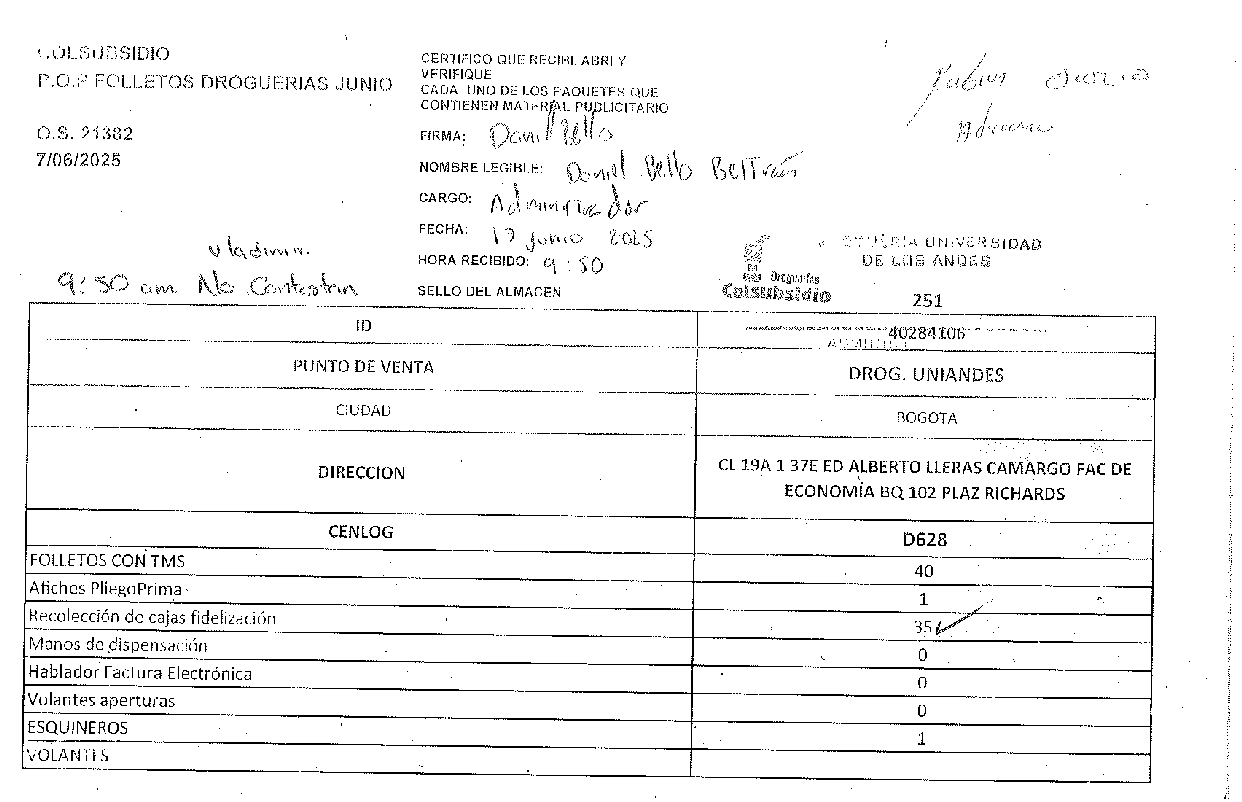 COLSUBSIDIO
P.O.P FOLLETOS DROGUERIAS JUNIO
O.S. 21382
7/06/2025
Vladimir.
9:50 am No Contestan
CERTIFICO QUE RECIBI, ABRI Y
VERIFIQUE
CADA UNO DE LOS PAQUETES QUE
CONTIENEN MATERIAL PUBLICITARIO
FIRMA: Daniel Bello
NOMBRE LEGIBLE: Daniel Bello Beltrán
CARGO: Administrador
FECHA: 17 junio 2025
HORA RECIBIDO: 9:50
SELLO DEL ALMACEN
Droguerías
Colsubsidio
UNIVERSIDAD
DE LOS ANDES
251
ID 40284106
PUNTO DE VENTA DROG. UNIANDES
CIUDAD BOGOTA
DIRECCION CL 19A 1 37E ED ALBERTO LLERAS CAMARGO FAC DE
ECONOMÍA BQ 102 PLAZ RICHARDS
CENLOG D628
FOLLETOS CON TMS 40
Afiches PliegoPrima 1
Recolección de cajas fidelización 35
Manos de dispensación 0
Hablador Factura Electrónica 0
Volantes aperturas 0
ESQUINEROS 1
VOLANTES